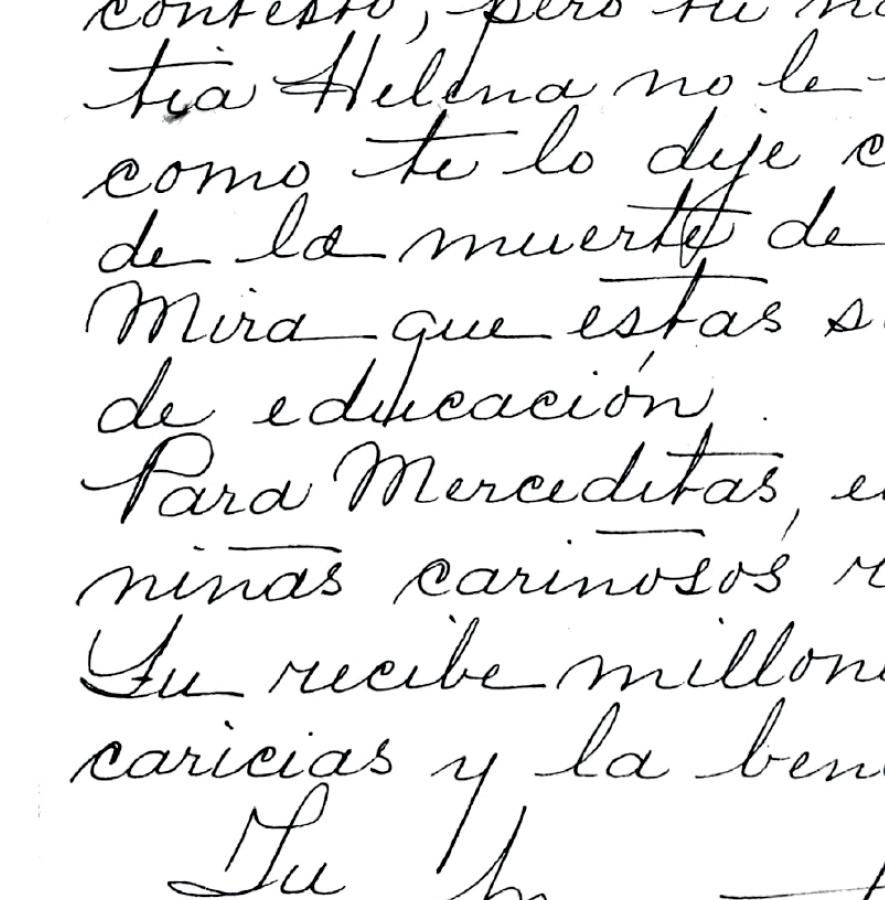 contesto, pero tu
tia Helena no le
como te lo dije
de la muerte de
Mira que estas
de educación
Para Merceditas,
niñas cariñosos
Tu recibe
caricias y la
Tu